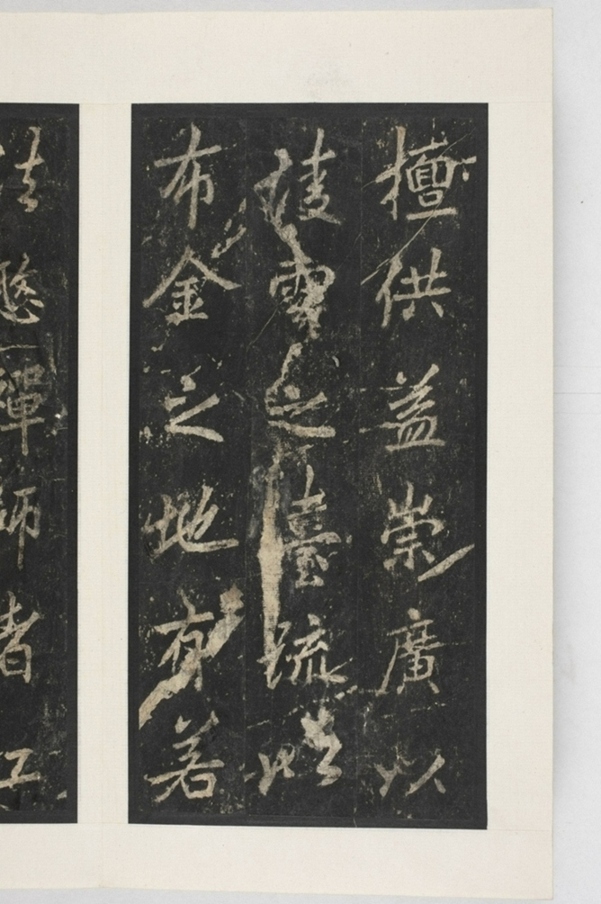 檀供益崇廣以
陵雲之臺疏以
布金之地有若
法愍禪師者江